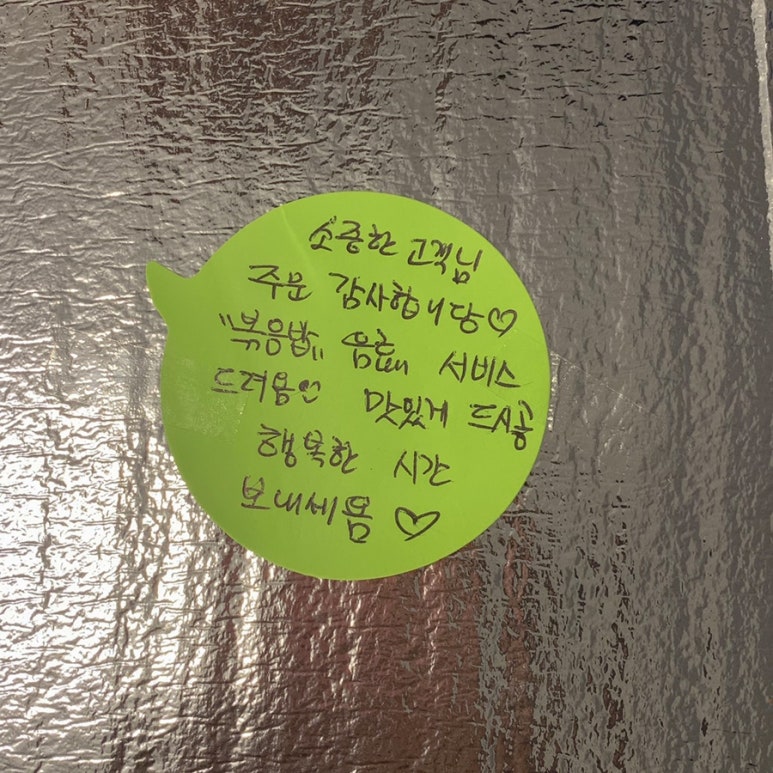 소중한 고객님
주문 감사합니당♡
"볶음밥" 음료 서비스
드려욤♡ 맛있게 드시공
행복한 시간
보내세욤 ♡